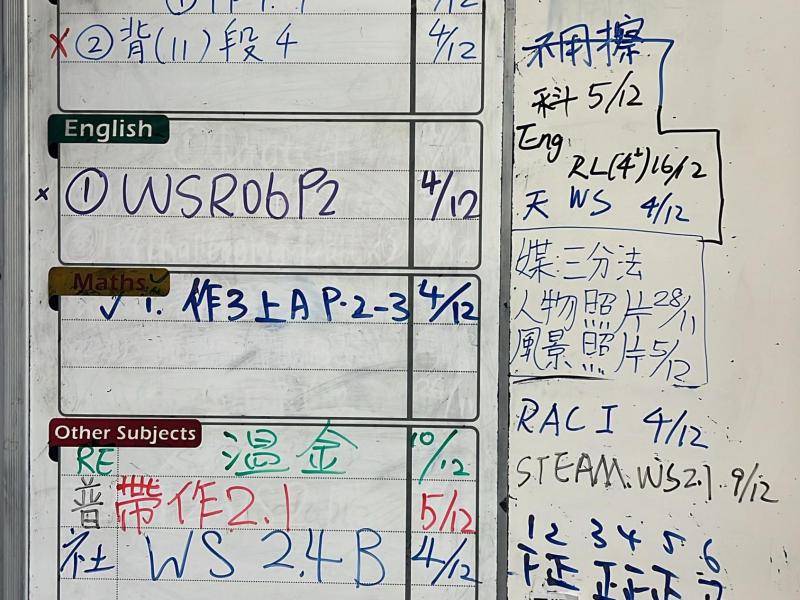 ① 作
4/12
×② 背(11)段4 4/12
English
× ① WSR06P2 4/12
Maths
✓ 1. 作3上A P.2-3 4/12
Other Subjects
RE 溫 金 10/12
普 帶作2.1 5/12
社 WS 2.4 B 4/12
不用擦
科 5/12
Eng
RL(4t) 16/12
天 WS 4/12
媒:三分法
人物照片 28/11
風景照片 5/12
RAC I 4/12
STEAM.WS2.1 9/12
1 2 3 4 5 6
正 正 正 正